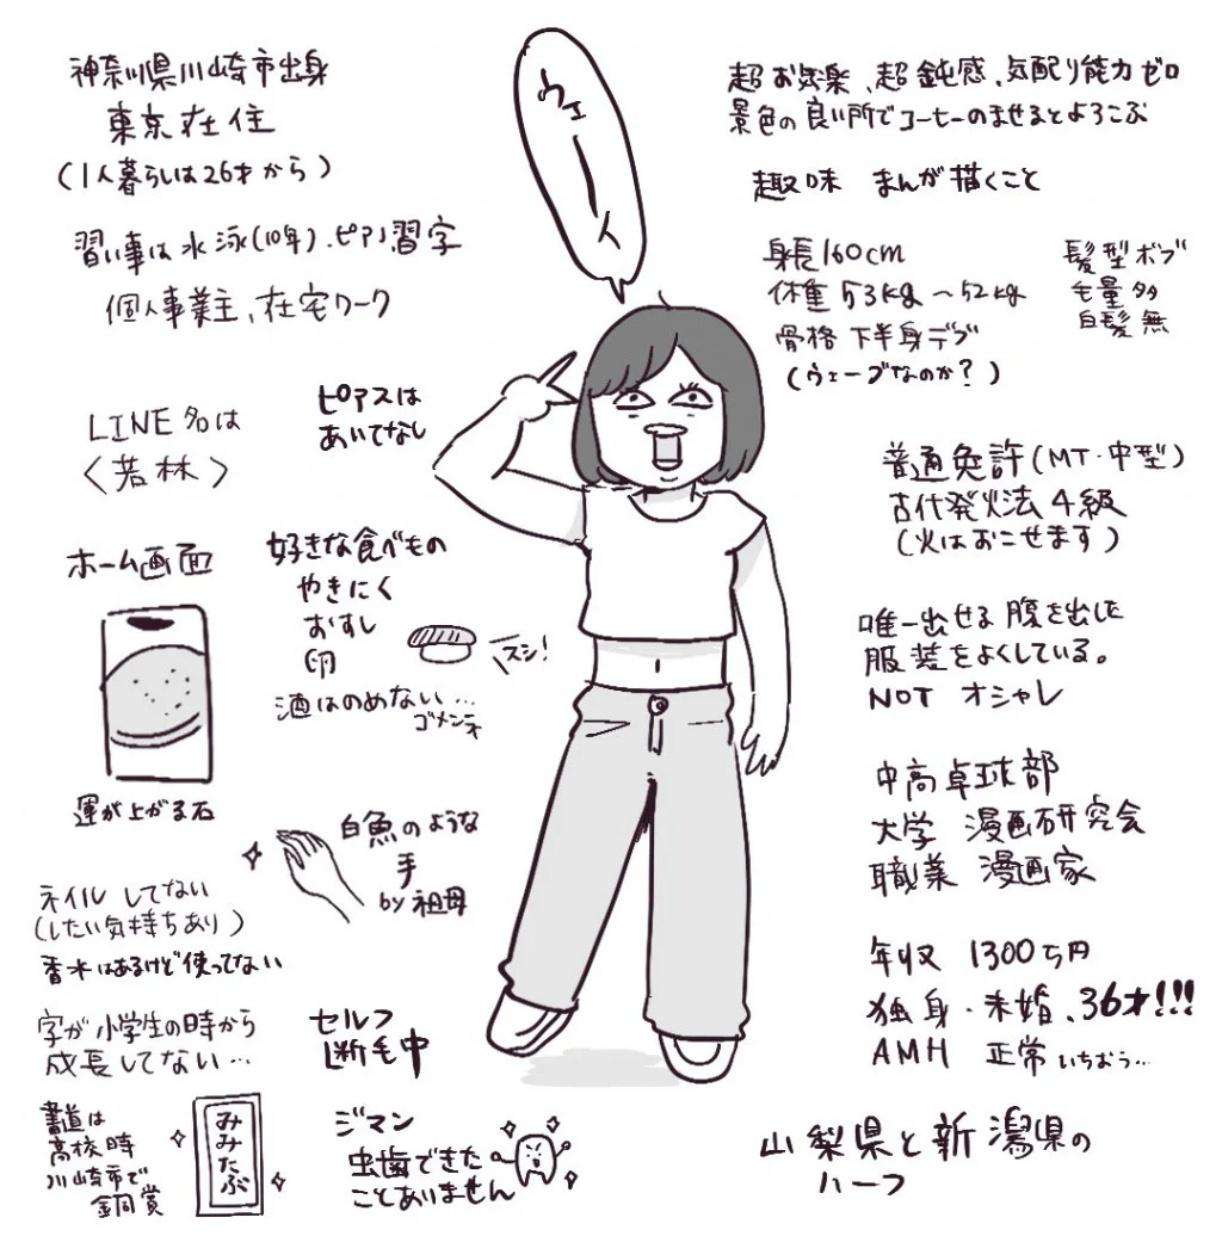 神奈川県川崎市出身
東京在住
(1人暮らしは26才から)
習い事は水泳(10年)、ピアノ習字
個人事業主、在宅ワーク
LINE名は
〈若林〉
ピアスは
あいてなし
ホーム画面
運が上がる石
好きな食べもの
やきにく
おすし
卵
スシ!
酒はのめない…
ゴメンネ
白魚のような
手
by祖母
ネイルしてない
(したい気持ちあり)
香水はあるけど使ってない
字が小学生の時から
成長してない…
書道は
高校時
川崎市で
銅賞
みみたぶ
セルフ
断毛中
ジマン
虫歯できた
ことありません
ウェーイ
超お気楽、超鈍感、気配り能力ゼロ
景色の良い所でコーヒーのませるとよろこぶ
趣味 まんが描くこと
身長160cm
体重53kg〜52kg
骨格 下半身デブ
(ウェーブなのか?)
髪型ボブ
毛量多
白髪無
普通免許(MT・中型)
古代発火法4級
(火はおこせます)
唯一出せる腹を出した
服装をよくしている。
NOT オシャレ
中高卓球部
大学 漫画研究会
職業 漫画家
年収 1300万円
独身・未婚、36才!!!
AMH 正常いちおう…
山梨県と新潟県の
ハーフ